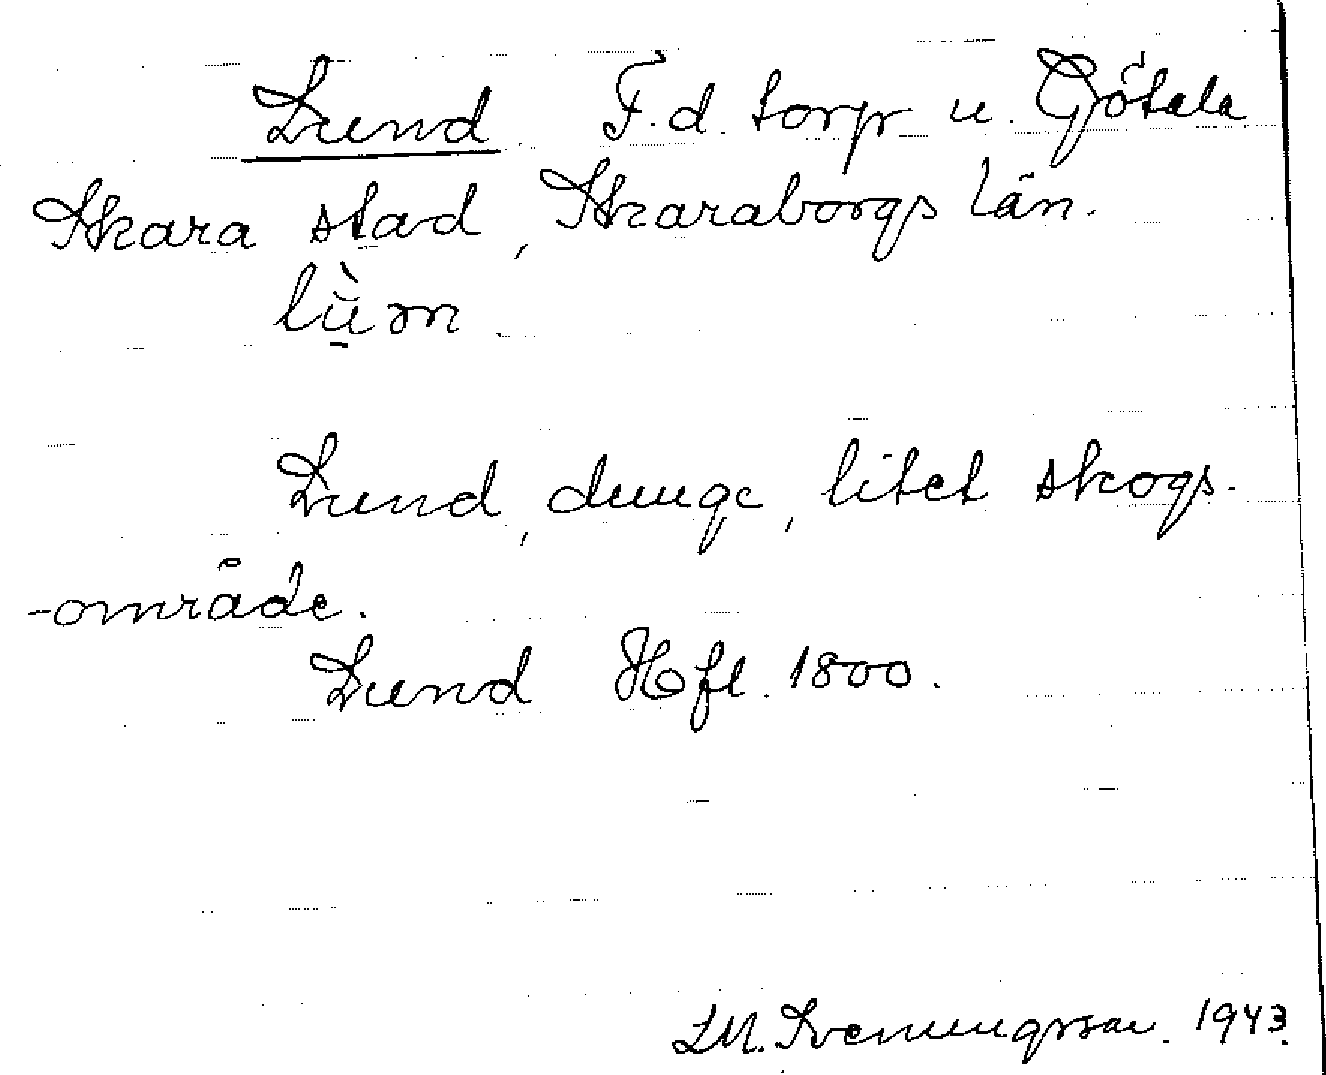 Lund F.d. torp u. Götala
Skara stad, Skaraborgs län.
lùnn
Lund, dunge, litet skogs-
-område.
Lund Hfl. 1800.
L.M. Svenungsson. 1943.